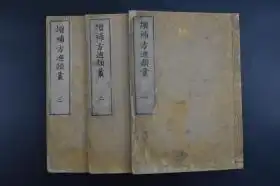 增補方選類叢 一
增補方選類叢 二
增補方選類叢 三